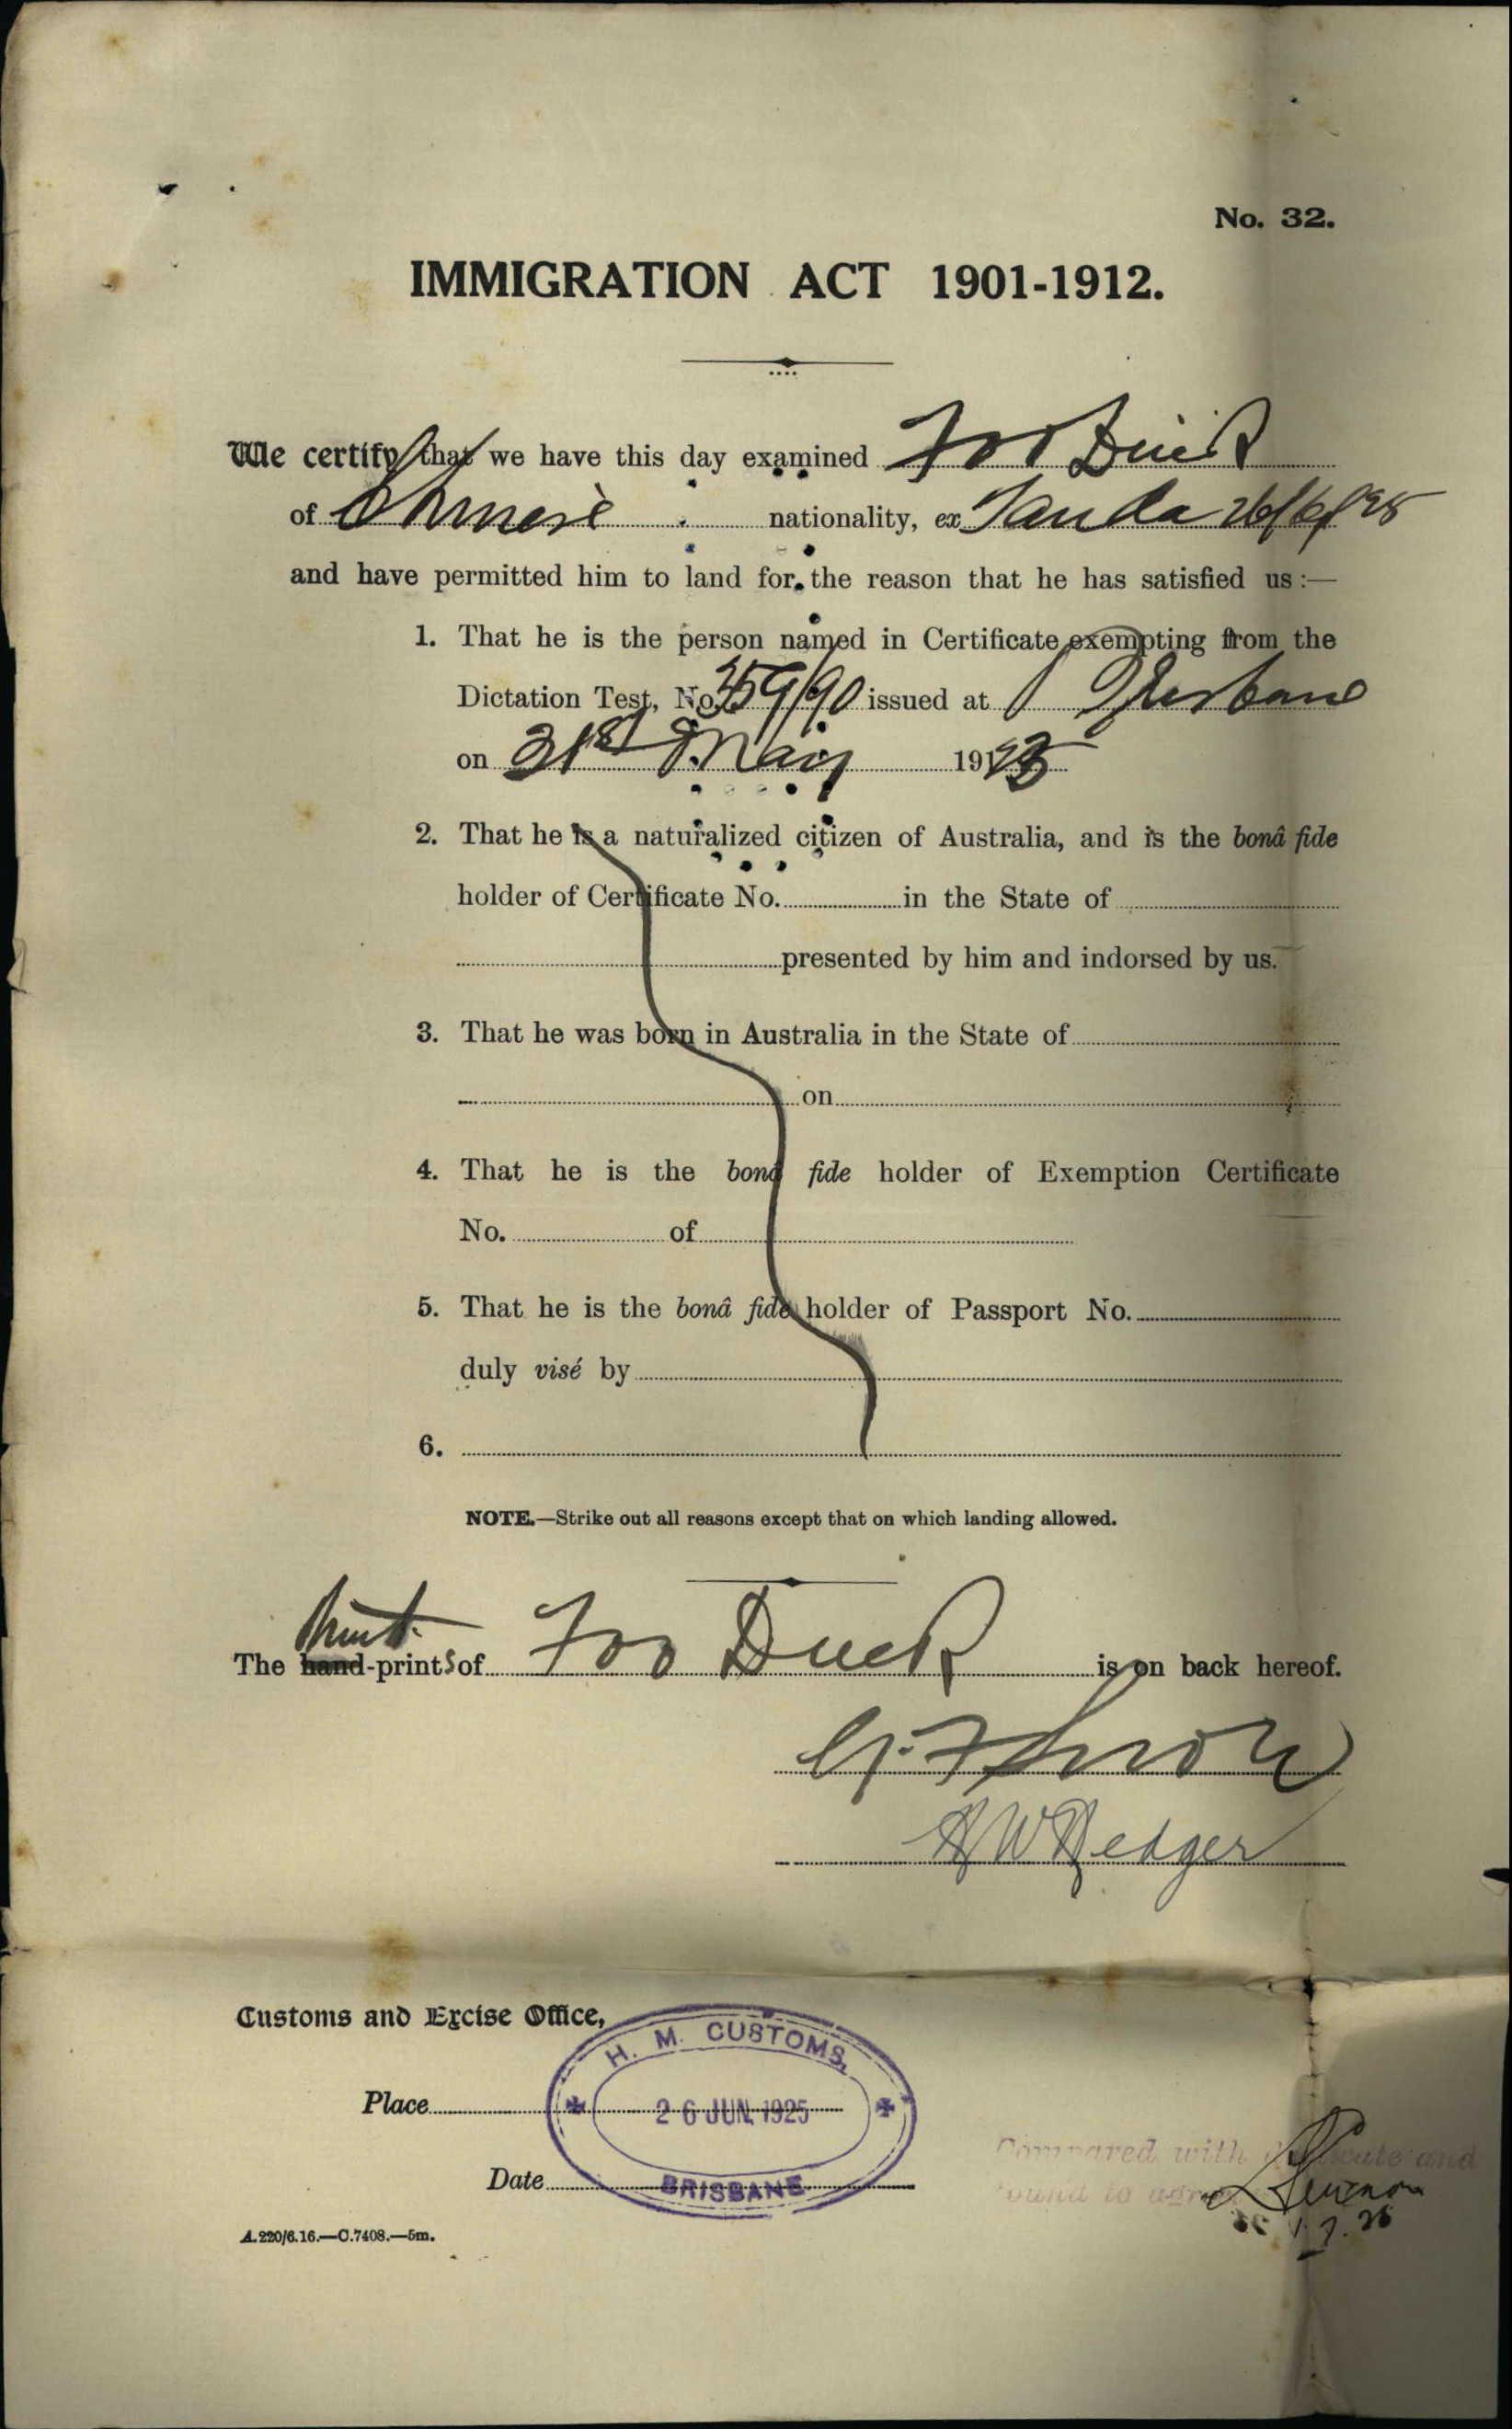 No. 32.
IMMIGRATION ACT 1901-1912.
We certify that we have this day examined Foo Duck
of Chinese nationality, ex Tanda 26/6/25
and have permitted him to land for the reason that he has satisfied us :—
1. That he is the person named in Certificate exempting from the
Dictation Test, No. 359/90 issued at Brisbane
on 21st May 1923
2. That he is a naturalized citizen of Australia, and is the bonâ fide
holder of Certificate No. in the State of
presented by him and indorsed by us.
3. That he was born in Australia in the State of
on
4. That he is the bonâ fide holder of Exemption Certificate
No. of
5. That he is the bonâ fide holder of Passport No.
duly visé by
6.
NOTE.—Strike out all reasons except that on which landing allowed.
The hand-prints of Foo Duck is on back hereof.
Customs and Excise Office,
H. M. CUSTOMS,
Place
26 JUN 1925
Date
BRISBANE
Compared with
found to agree
A.220/6.16.—C.7408.—5m.